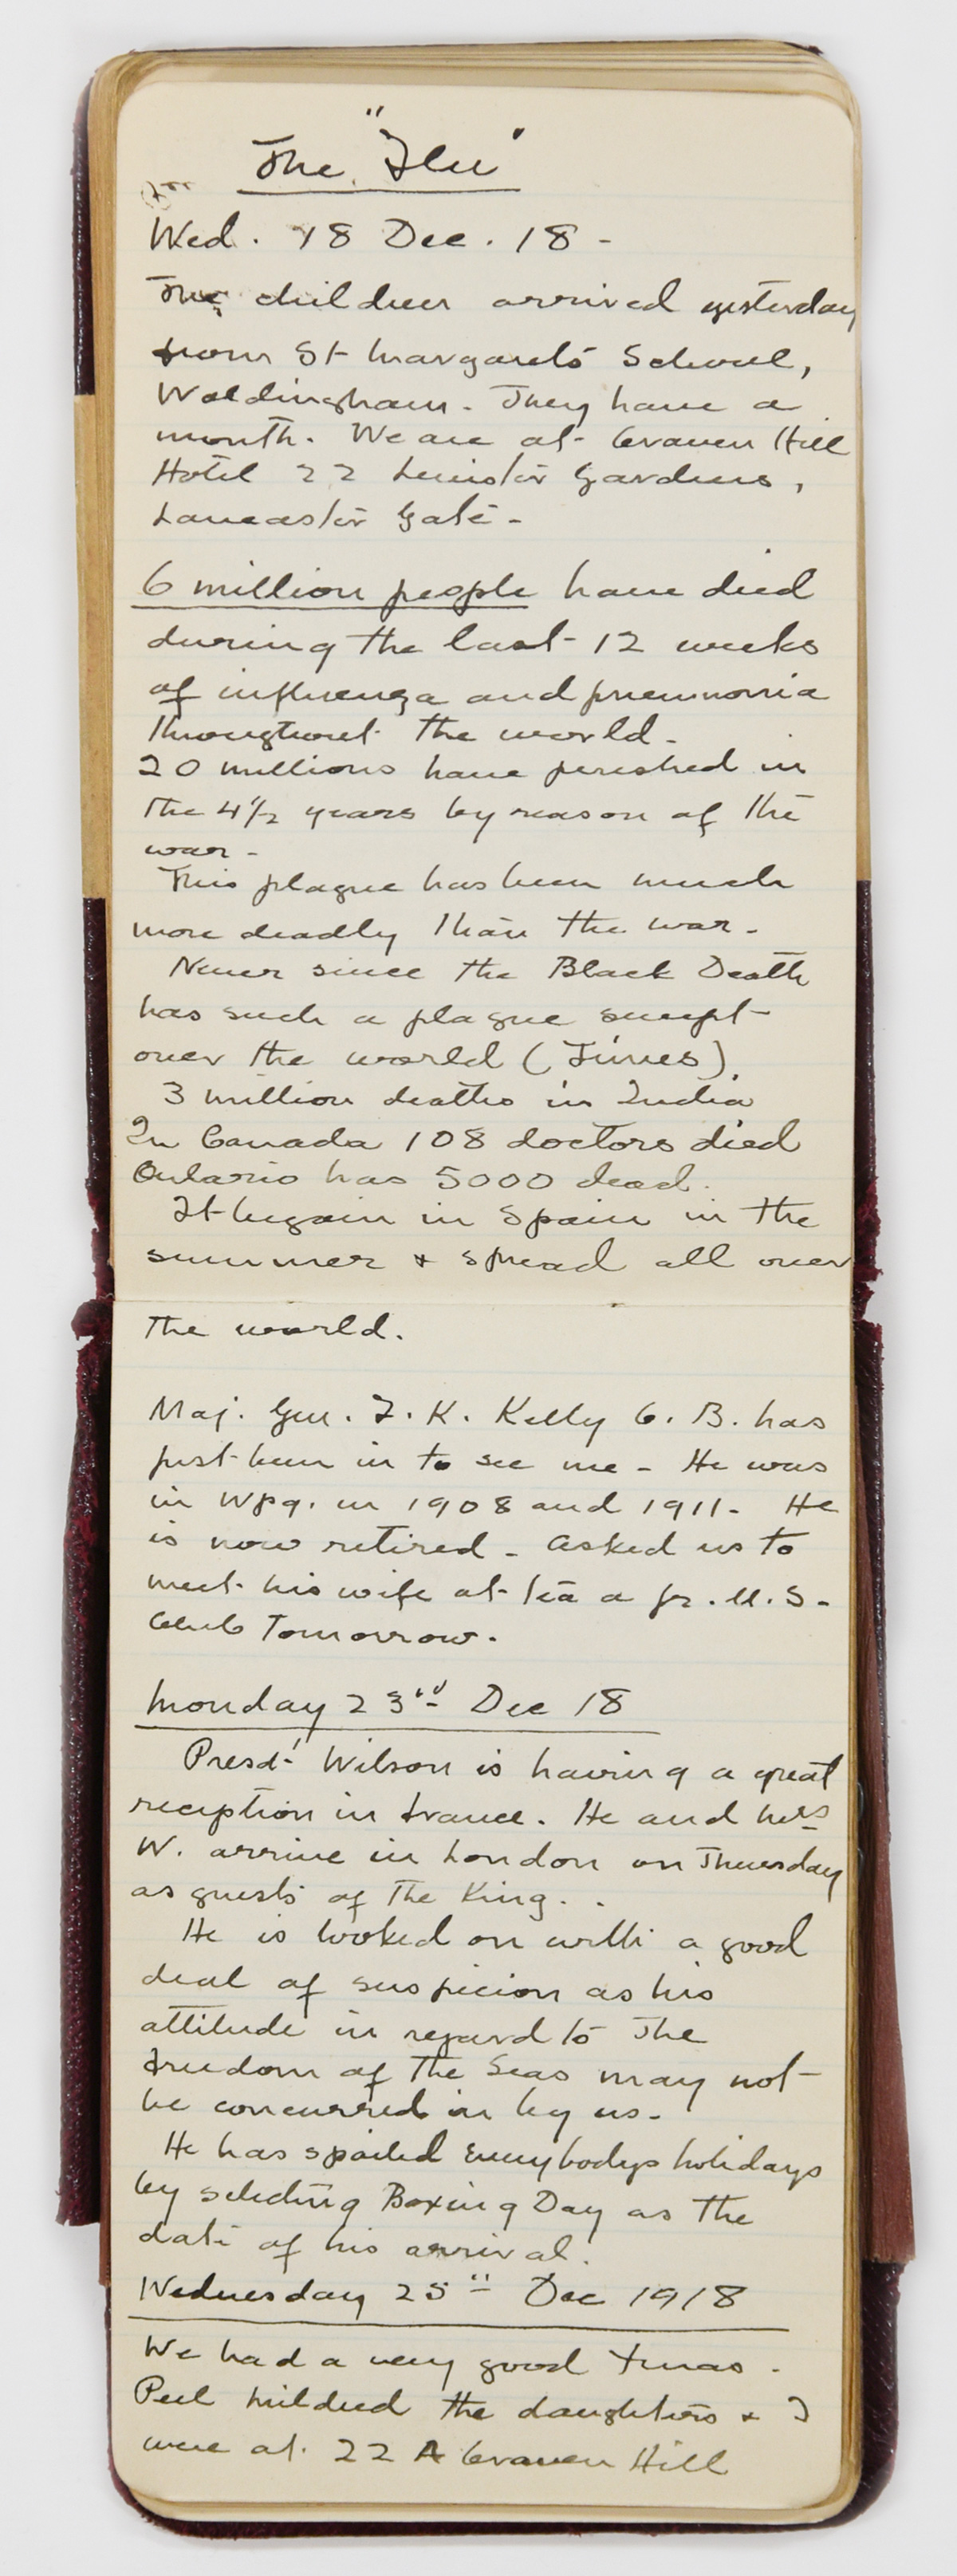 The "Flu"
Wed. 18 Dec. 18 -
The children arrived yesterday
from St Margarets School,
Woldingham. They have a
month. We are at Craven Hill
Hotel 22 Leinster Gardens,
Lancaster Gate -
6 million people have died
during the last 12 weeks
of influenza and pneumonia
throughout the world -
20 millions have perished in
the 4½ years by reason of the
war -
This plague has been much
more deadly than the war -
Never since the Black Death
has such a plague swept
over the world (Times).
3 million deaths in India
In Canada 108 doctors died
Ontario has 5000 dead.
It began in Spain in the
summer & spread all over
the world.
Maj. Gen. F. K. Kelly C. B. has
just been in to see me - He was
in Wpg. in 1908 and 1911 - He
is now retired - asked us to
meet his wife at tea a jr. U. S.
Club Tomorrow.
Monday 23rd Dec 18
Presdt Wilson is having a great
reception in France. He and Mrs
W. arrive in London on Thursday
as guests of The King.
He is looked on with a good
deal of suspicion as his
attitude in regard to The
freedom of The Seas may not
be concurred in by us -
He has spoiled Everybodys holidays
by selecting Boxing Day as the
date of his arrival.
Wednesday 25" Dec 1918
We had a very good Xmas -
Peel Mildred the daughters & I
were at 22 A Craven Hill